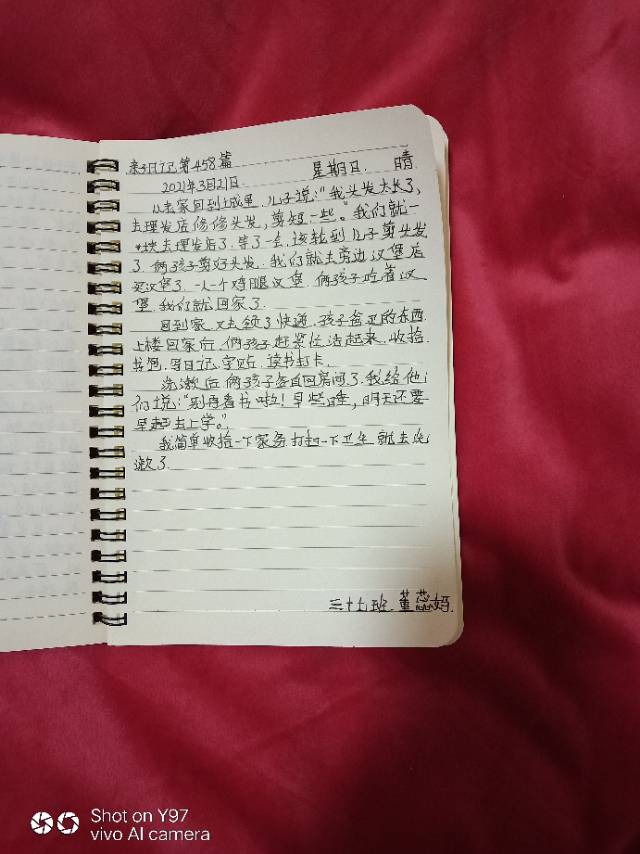 亲子日记第458篇
2021年3月21日 星期日 晴
从老家回到上城里,儿子说:"我头发太长了,
去理发店修修头发,剪短一些。"我们就一
块去理发店了,等了一会,该轮到儿子剪头发
了,俩孩子剪好头发,我们就去旁边汉堡店
买汉堡了,一人一个鸡腿汉堡,俩孩子吃着汉
堡,我们就回家了.
回到家,又去领了快递,孩子爸买的东西.
上楼回家后,俩孩子赶紧忙活起来,收拾
书包,写日记,字贴,读书打卡.
洗漱后俩孩子各自回房间了,我给他
们说:"别再看书啦!早些睡,明天还要
早起去上学。"
我简单收拾一下家务,打扫一下卫生,就去洗
漱了.
三十七班 董 妈
Shot on Y97
vivo AI camera